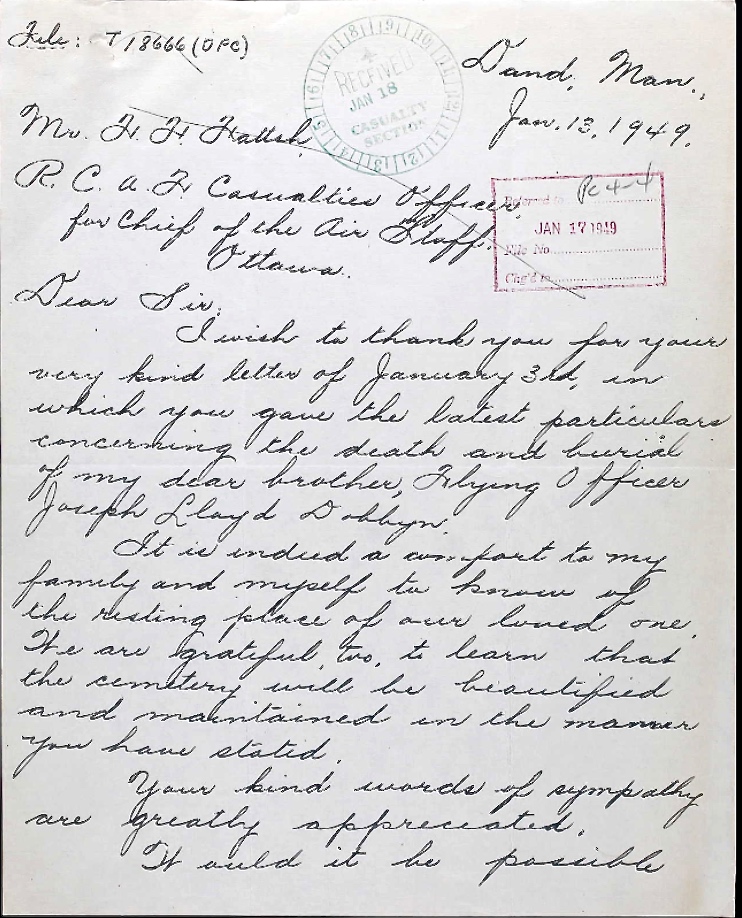 File: T18666 (OPC)
RECEIVED
JAN 18
CASUALTY
SECTION
Dand, Man.,
Jan. 13, 1949.
Mr. H. H.
R. C. A. F. Casualties Officer,
for Chief of the Air Staff.
Ottawa.
Referred to Pc 4-4
JAN 17 1949
File No.
Chg'd to
Dear Sir:
I wish to thank you for your
very kind letter of January 3rd, in
which you gave the latest particulars
concerning the death and burial
of my dear brother, Flying Officer
Joseph Lloyd Dobbyn.
It is indeed a comfort to my
family and myself to know of
the resting place of our loved one.
We are grateful, too, to learn that
the cemetery will be beautified
and maintained in the manner
you have stated.
Your kind words of sympathy
are greatly appreciated.
Would it be possible